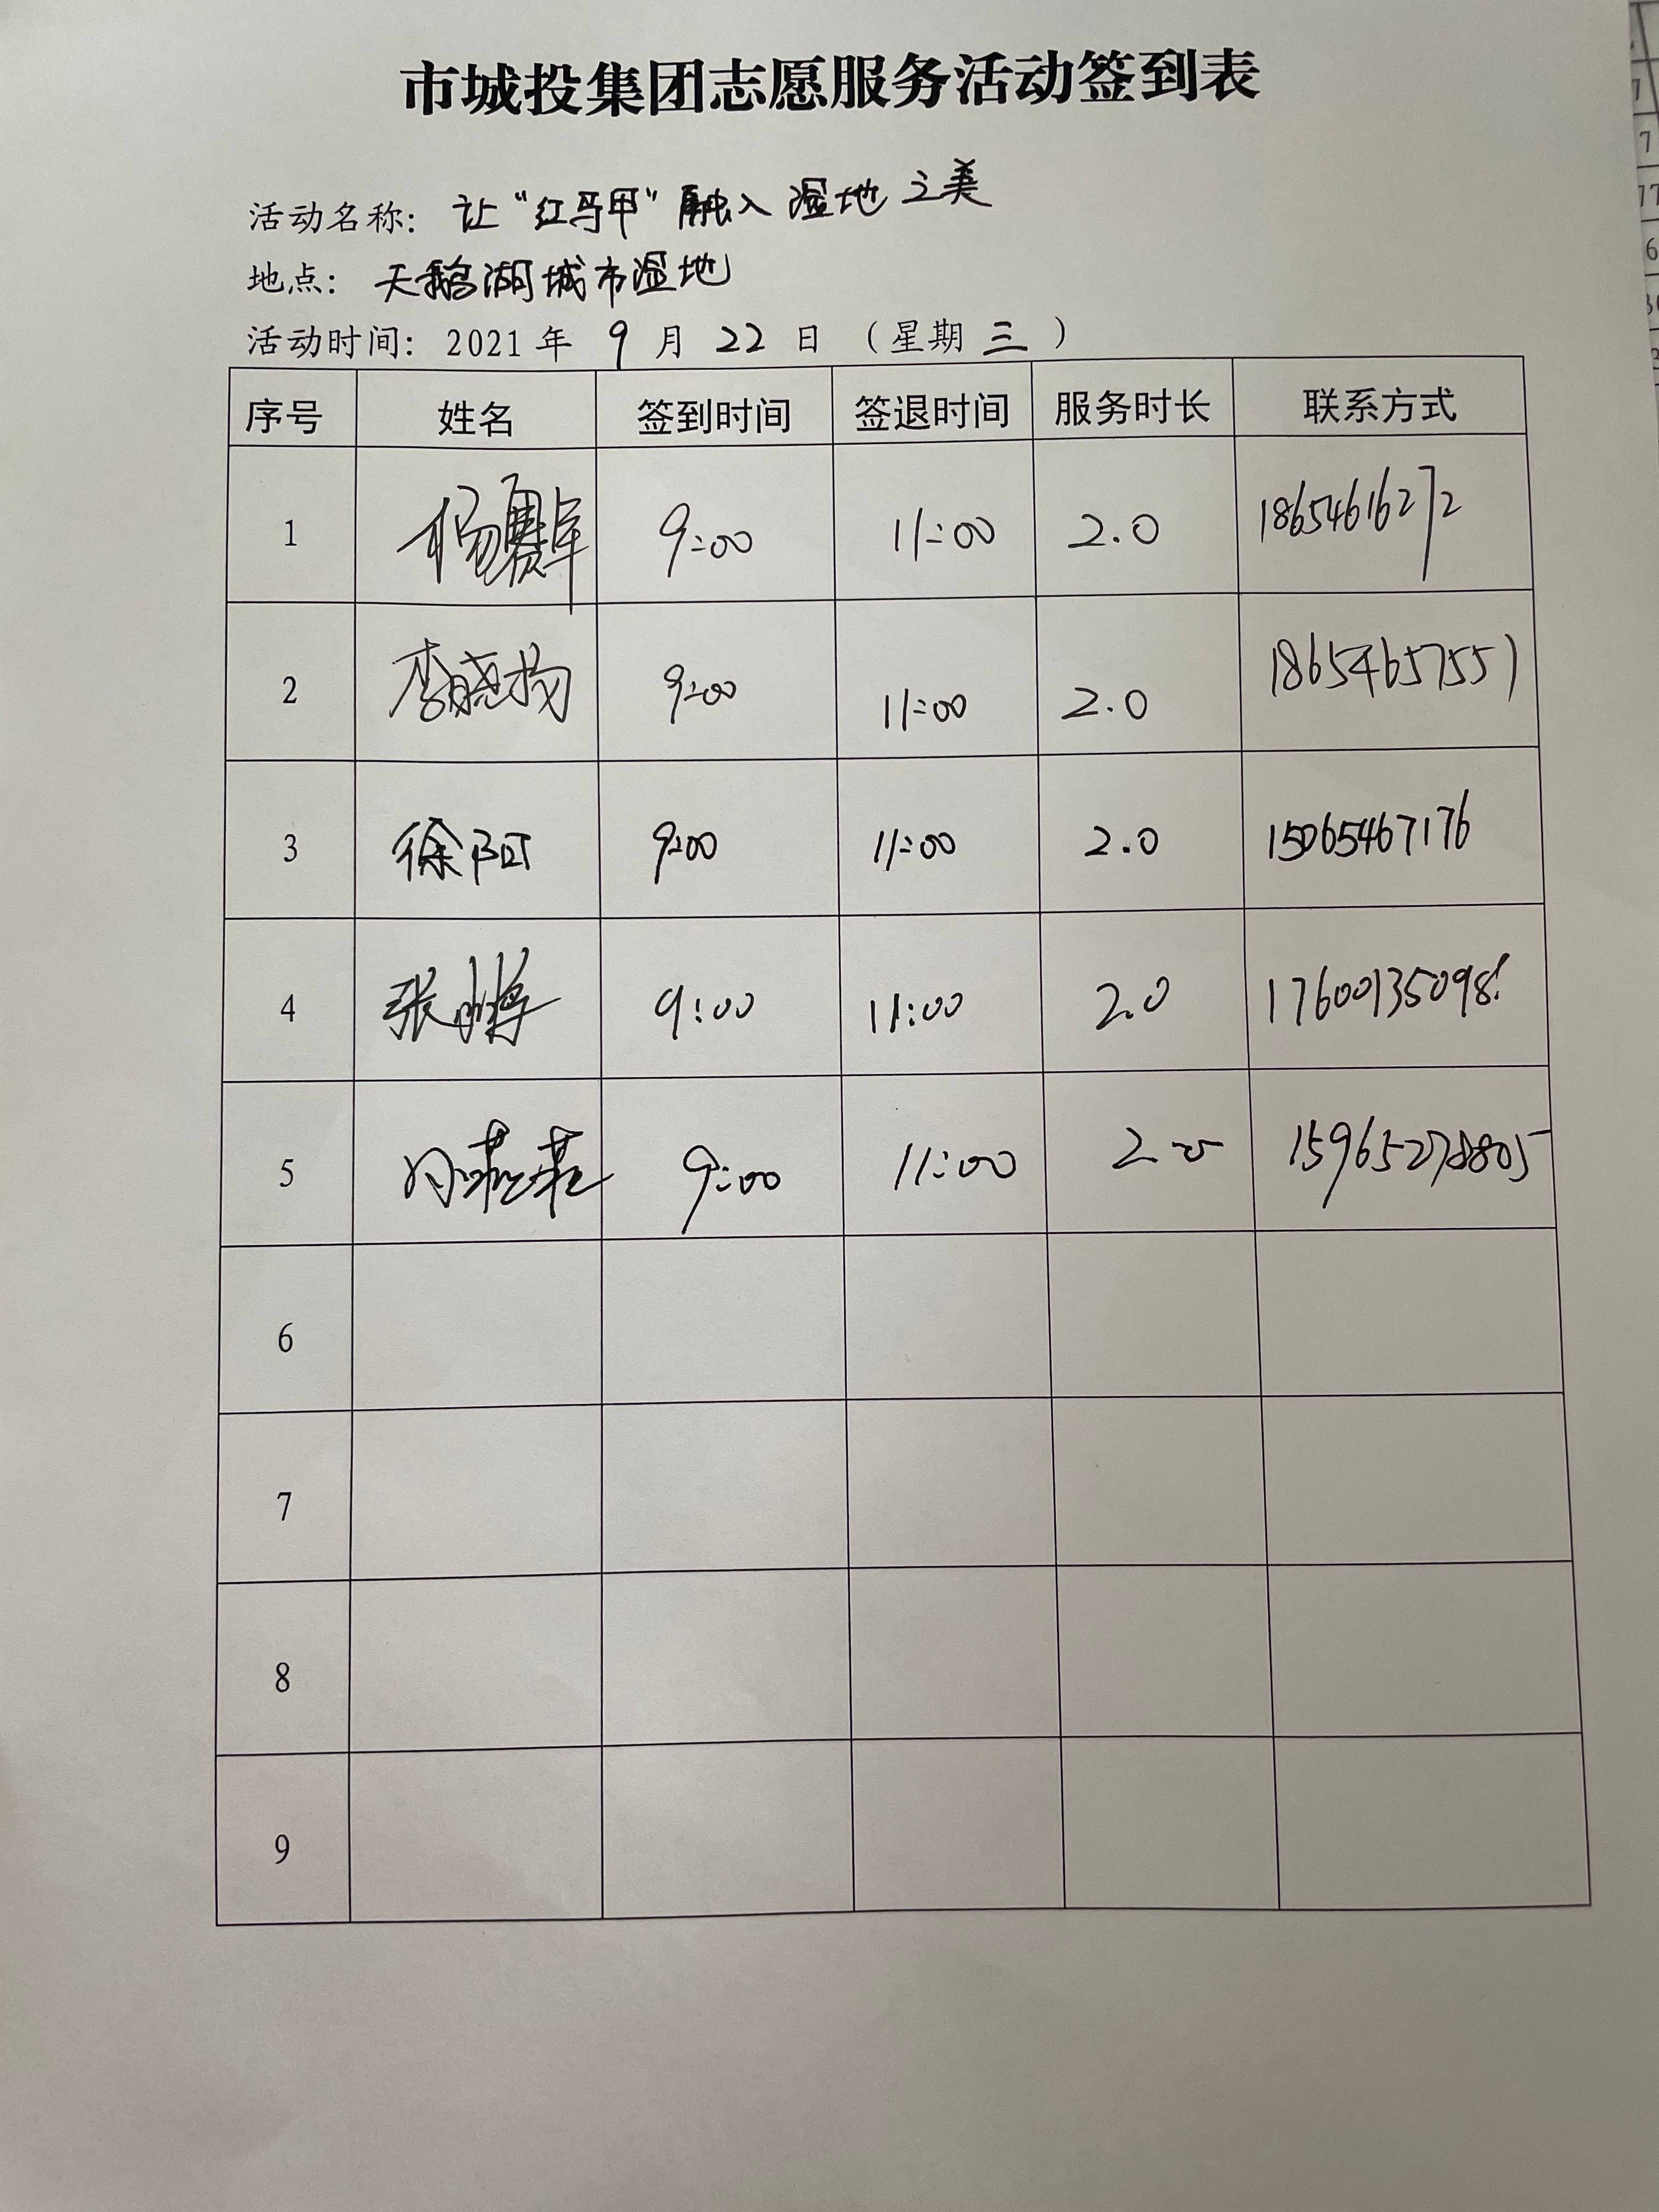 市城投集团志愿服务活动签到表
活动名称: 让"红马甲"融入湿地之美
地点: 天鹅湖城市湿地
活动时间: 2021年 9 月 22 日 (星期 三 )
序号 姓名 签到时间 签退时间 服务时长 联系方式
1 杨赛军 9:00 11:00 2.0 18654616272
2 李晓扬 9:00 11:00 2.0 18654657551
3 徐阳 9:00 11:00 2.0 15065467176
4 张 9:00 11:00 2.0 17600135098
5 9:00 11:00 2.0 15965278805
6
7
8
9